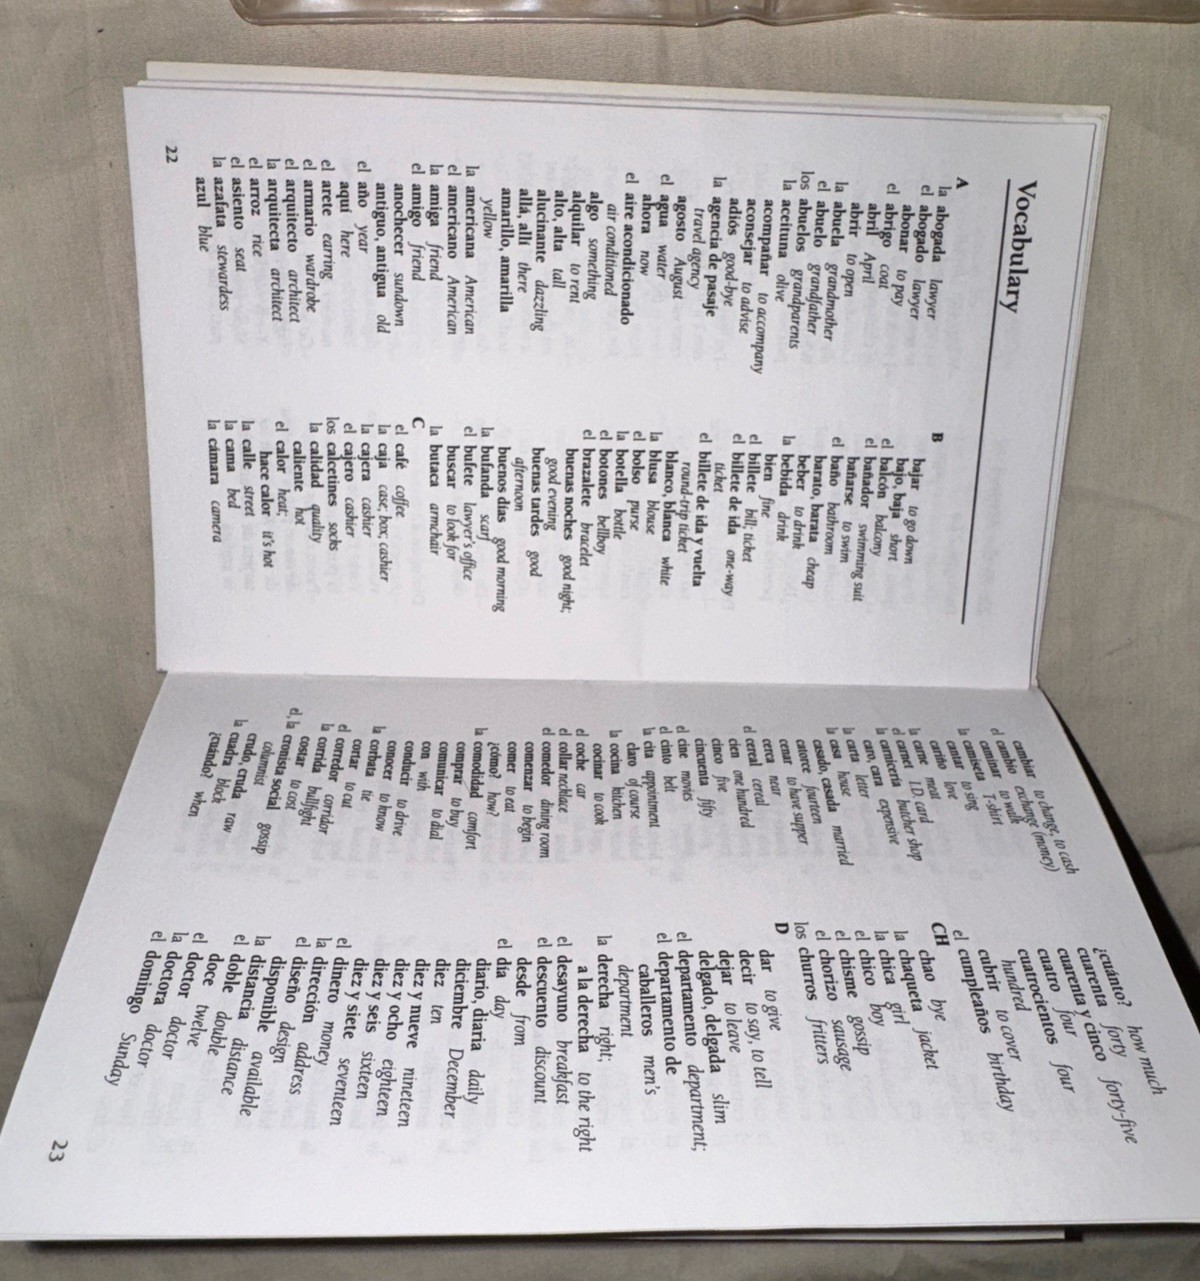 Vocabulary
A
la abogada lawyer
el abogado lawyer
abonar to pay
el abrigo coat
abril April
abrir to open
la abuela grandmother
el abuelo grandfather
los abuelos grandparents
la aceituna olive
acompañar to accompany
aconsejar to advise
adiós good-bye
la agencia de pasaje
travel agency
agosto August
el agua water
ahora now
el aire acondicionado
air conditioned
algo something
alquilar to rent
alto, alta tall
alucinante dazzling
allá, allí there
amarillo, amarilla
yellow
la americana American
el americano American
la amiga friend
el amigo friend
anochecer sundown
antiguo, antigua old
el año year
aquí here
el arete earring
el armario wardrobe
el arquitecto architect
la arquitecta architect
el arroz rice
el asiento seat
la azafata stewardess
azul blue
B
bajar to go down
bajo, baja short
el balcón balcony
el bañador swimming suit
bañarse to swim
el baño bathroom
barato, barata cheap
beber to drink
la bebida drink
bien fine
el billete bill; ticket
el billete de ida one-way
ticket
el billete de ida y vuelta
round-trip ticket
blanco, blanca white
la blusa blouse
el bolso purse
la botella bottle
el botones bellboy
el brazalete bracelet
buenas noches good night;
good evening
buenas tardes good
afternoon
buenos días good morning
la bufanda scarf
el bufete lawyer's office
buscar to look for
la butaca armchair
C
el café coffee
la caja case; box; cashier
la cajera cashier
el cajero cashier
los calcetines socks
la calidad quality
caliente hot
el calor heat;
hace calor it's hot
la calle street
la cama bed
la cámara camera
22
cambiar to change, to cash
el cambio exchange (money)
caminar to walk
la camiseta T-shirt
cantar to sing
cariño love
la carne meat
el carnet I.D. card
la carnicería butcher shop
caro, cara expensive
la carta letter
la casa house
casado, casada married
catorce fourteen
cenar to have supper
cerca near
el cereal cereal
cien one hundred
cinco five
cincuenta fifty
el cine movies
el cinto belt
la cita appointment
claro of course
la cocina kitchen
cocinar to cook
el coche car
el collar necklace
el comedor dining room
comenzar to begin
comer to eat
¿cómo? how?
la comodidad comfort
comprar to buy
comunicar to dial
con with
conducir to drive
conocer to know
la corbata tie
cortar to cut
el corredor corridor
la corrida bullfight
costar to cost
el, la cronista social gossip
columnist
crudo, cruda raw
la cuadra block
¿cuándo? when
¿cuánto? how much
cuarenta forty
cuarenta y cinco forty-five
cuatro four
cuatrocientos four
hundred
cubrir to cover
el cumpleaños birthday
CH
chao bye
la chaqueta jacket
la chica girl
el chico boy
el chisme gossip
el chorizo sausage
los churros fritters
D
dar to give
decir to say, to tell
dejar to leave
delgado, delgada slim
el departamento department;
el departamento de
caballeros men's
department
la derecha right;
a la derecha to the right
el desayuno breakfast
el descuento discount
desde from
el día day
diario, diaria daily
diciembre December
diez ten
diez y nueve nineteen
diez y ocho eighteen
diez y seis sixteen
diez y siete seventeen
el dinero money
la dirección address
el diseño design
disponible available
la distancia distance
el doble double
doce twelve
el doctor doctor
la doctora doctor
el domingo Sunday
23